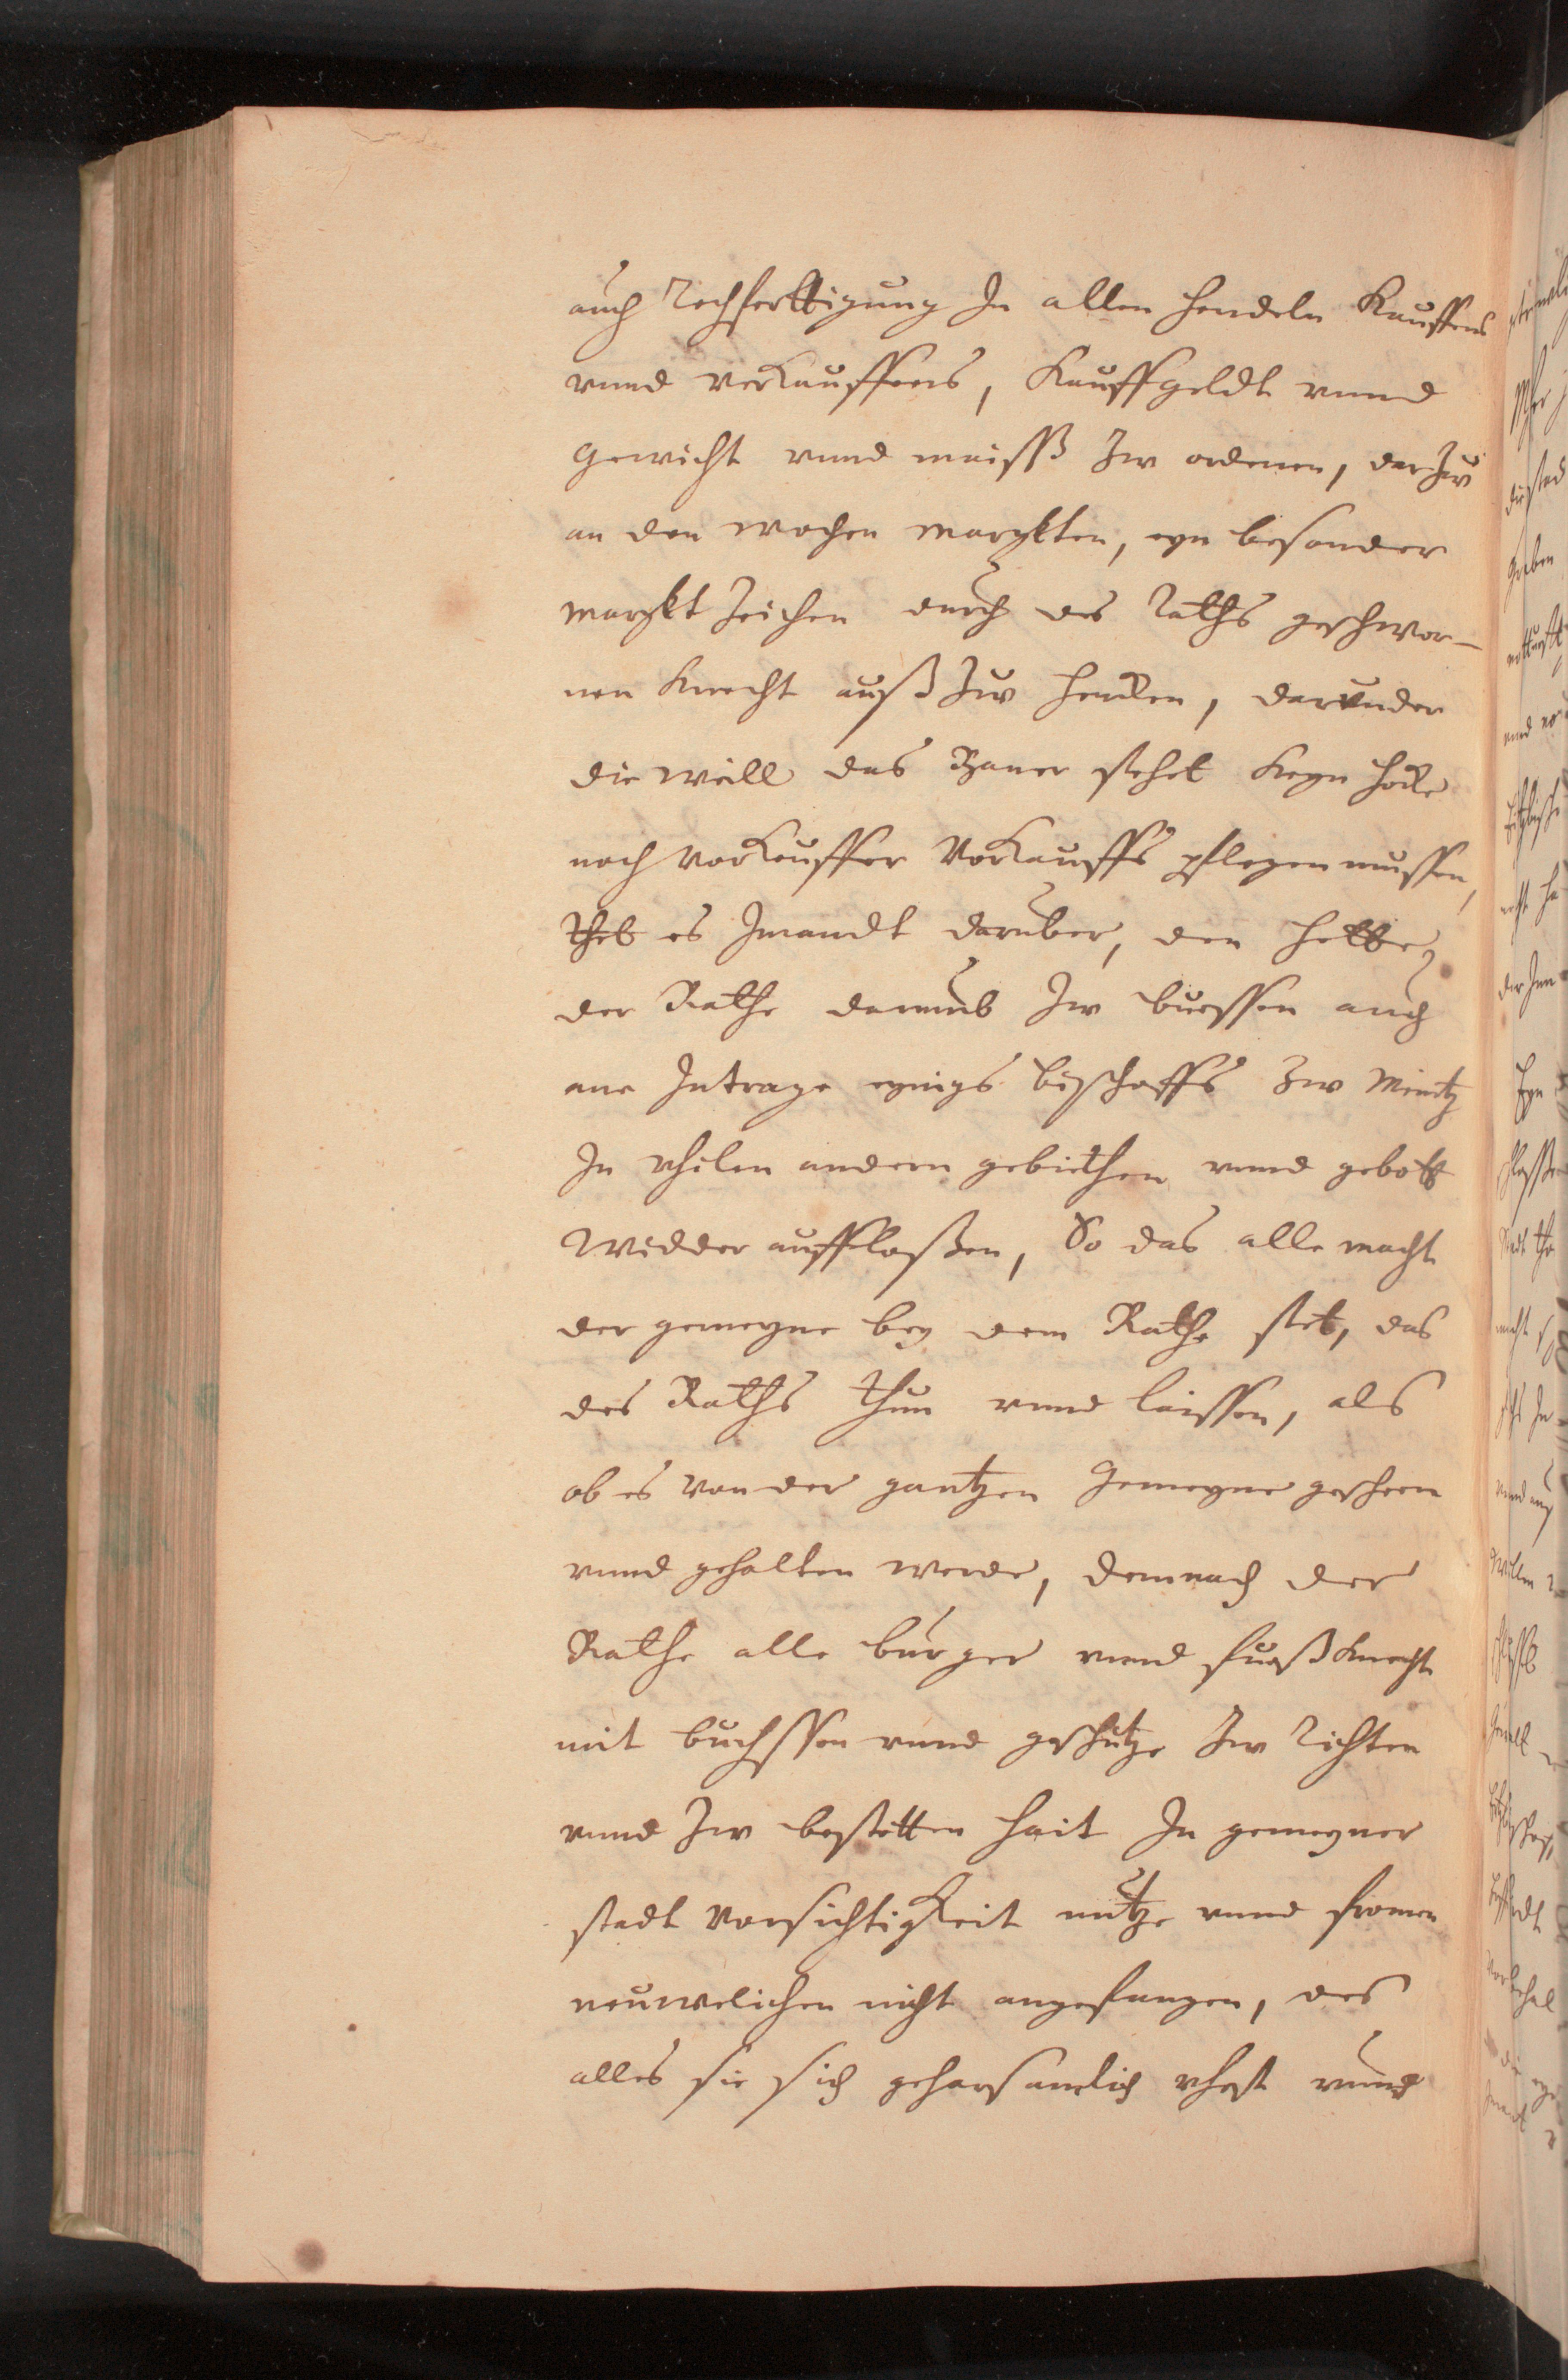 auch Rechfertkigung In allen hendeln Kauffens
vnnd verkauffens, Kauffgeldt vnnd
gewicht vnnd maissß Zw ordenen, dar Zw
an den wochen marckten, eyn besonder
marckt Zeichen durch des Raths geschwor-
nen knecht auß Zw hencken, darunder
die weill das Baner stehet keyn hocke
noch vorkeuffer Vorkauffs pflegen mussen,
Thet es Jmandt daruber, den hette
der Rathe darumb Zw buessen auch
ane Intrage eynigs bischoffs Zw Mentz
In vhilen andern gebiethen vnnd gebott
Widder aufflaßen, So das alle macht
der gemeyne bey dem Rathe stet, das
des Raths thun vnnd laissen, als
ob es von der gantzen Gemeyne gescheen
vnnd gehalten werde, demnach der
Rathe alle burger vnnd fueßknecht
mit buchssen vnnd geschutze Zw Richten
vnnd Zw bestetten hait In gemeyner
stadt vorsichtigkeit nutze vnnd fromen
neuwelichen nicht angefangen, des
alles sie sich gehorsamlich vhest vnnd